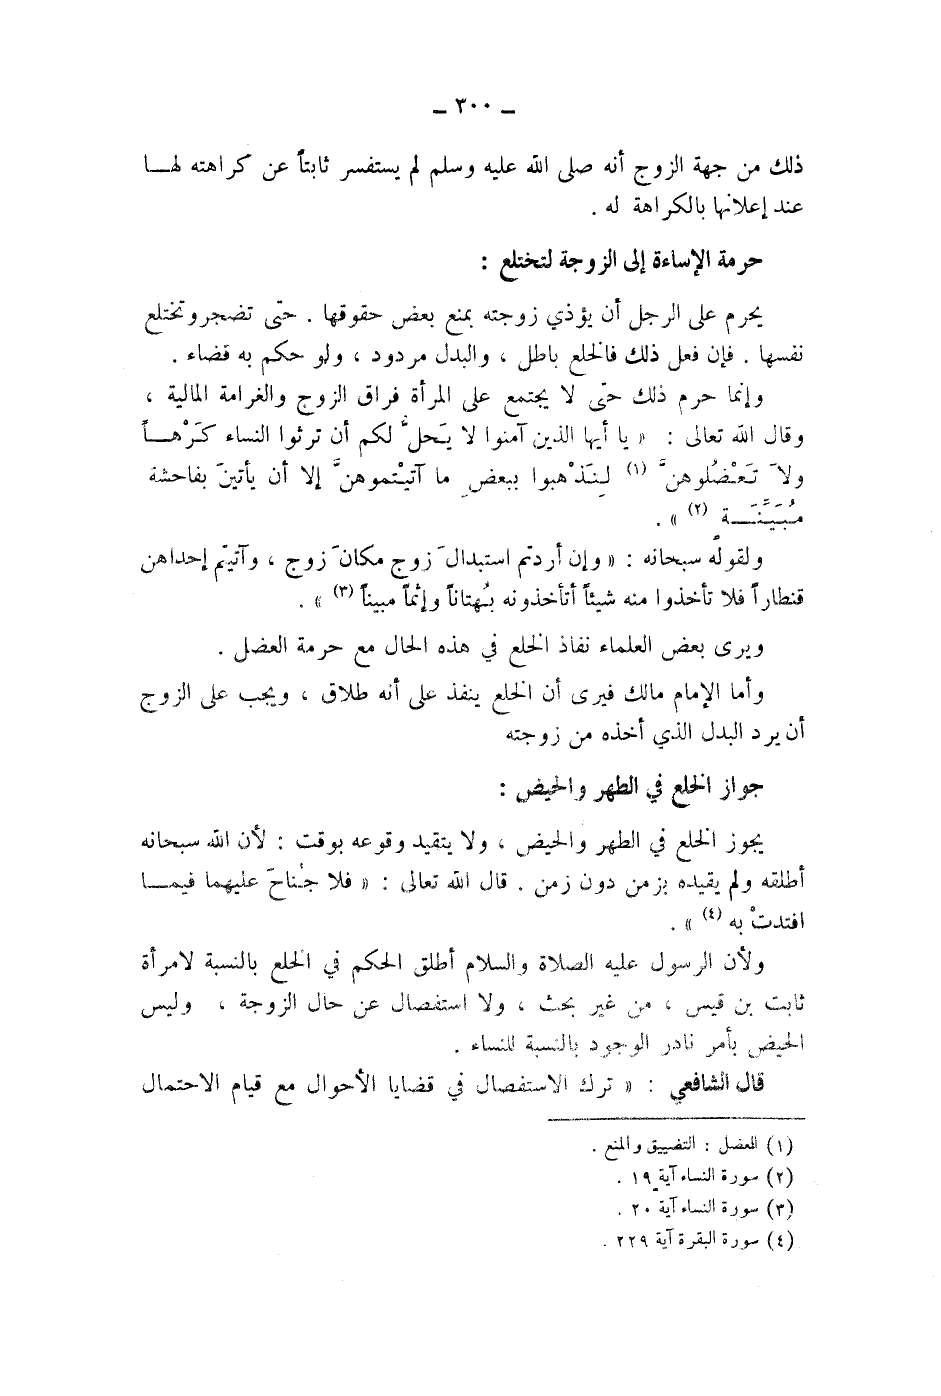 ــ ٣٠٠ ــ
ذلك من جهة الزوج أنه صلى الله عليه وسلم لم يستفسر ثابتاً عن كراهته لهـــا
عند إعلانها بالكراهة له .
حرمة الإساءة إلى الزوجة لتختلع :
يحرم على الرجل أن يؤذي زوجته بمنع بعض حقوقها . حتى تضجر وتختلع
نفسها . فإن فعل ذلك فالخلع باطل ، والبدل مردود ، ولو حكم به قضاء .
وإنما حرم ذلك حتى لا يجتمع على المرأة فراق الزوج والغرامة المالية ،
وقال الله تعالى : « يا أيها الذين آمنوا لا يَحلُّ لكم أن ترثوا النساء كَرْهــاً
ولاَ تَعْضُلوهنَّ (١) لِتَذْهبوا ببعضِ ما آتيْتموهنَّ إلا أن يأتينَ بفاحشة
مُبَيِّنَــة (٢) » .
ولقوله سبحانه : « وإن أردتم استبدالَ زوج مكانَ زوج ، وآتيتم إحداهن
قنطاراً فلا تأخذوا منه شيئاً أتأخذونه بُهتاناً وإثماً مبيناً (٣) » .
ويرى بعض العلماء نفاذ الخلع في هذه الحال مع حرمة العضل .
وأما الإمام مالك فيرى أن الخلع ينفذ على أنه طلاق ، ويجب على الزوج
أن يرد البدل الذي أخذه من زوجته
جواز الخلع في الطهر والحيض :
يجوز الخلع في الطهر والحيض ، ولا يتقيد وقوعه بوقت : لأن الله سبحانه
أطلقه ولم يقيده بزمن دون زمن . قال الله تعالى : « فلا جُناحَ عليهما فيمــا
افتدتْ به (٤) » .
ولأن الرسول عليه الصلاة والسلام أطلق الحكم في الخلع بالنسبة لامرأة
ثابت بن قيس ، من غير بحث ، ولا استفصال عن حال الزوجة ، وليس
الحيض بأمر نادر الوجود بالنسبة للنساء .
قال الشافعي : « ترك الاستفصال في قضايا الأحوال مع قيام الاحتمال
(١) العضل : التضييق والمنع .
(٢) سورة النساء آية ١٩ .
(٣) سورة النساء آية ٢٠ .
(٤) سورة البقرة آية ٢٢٩ .